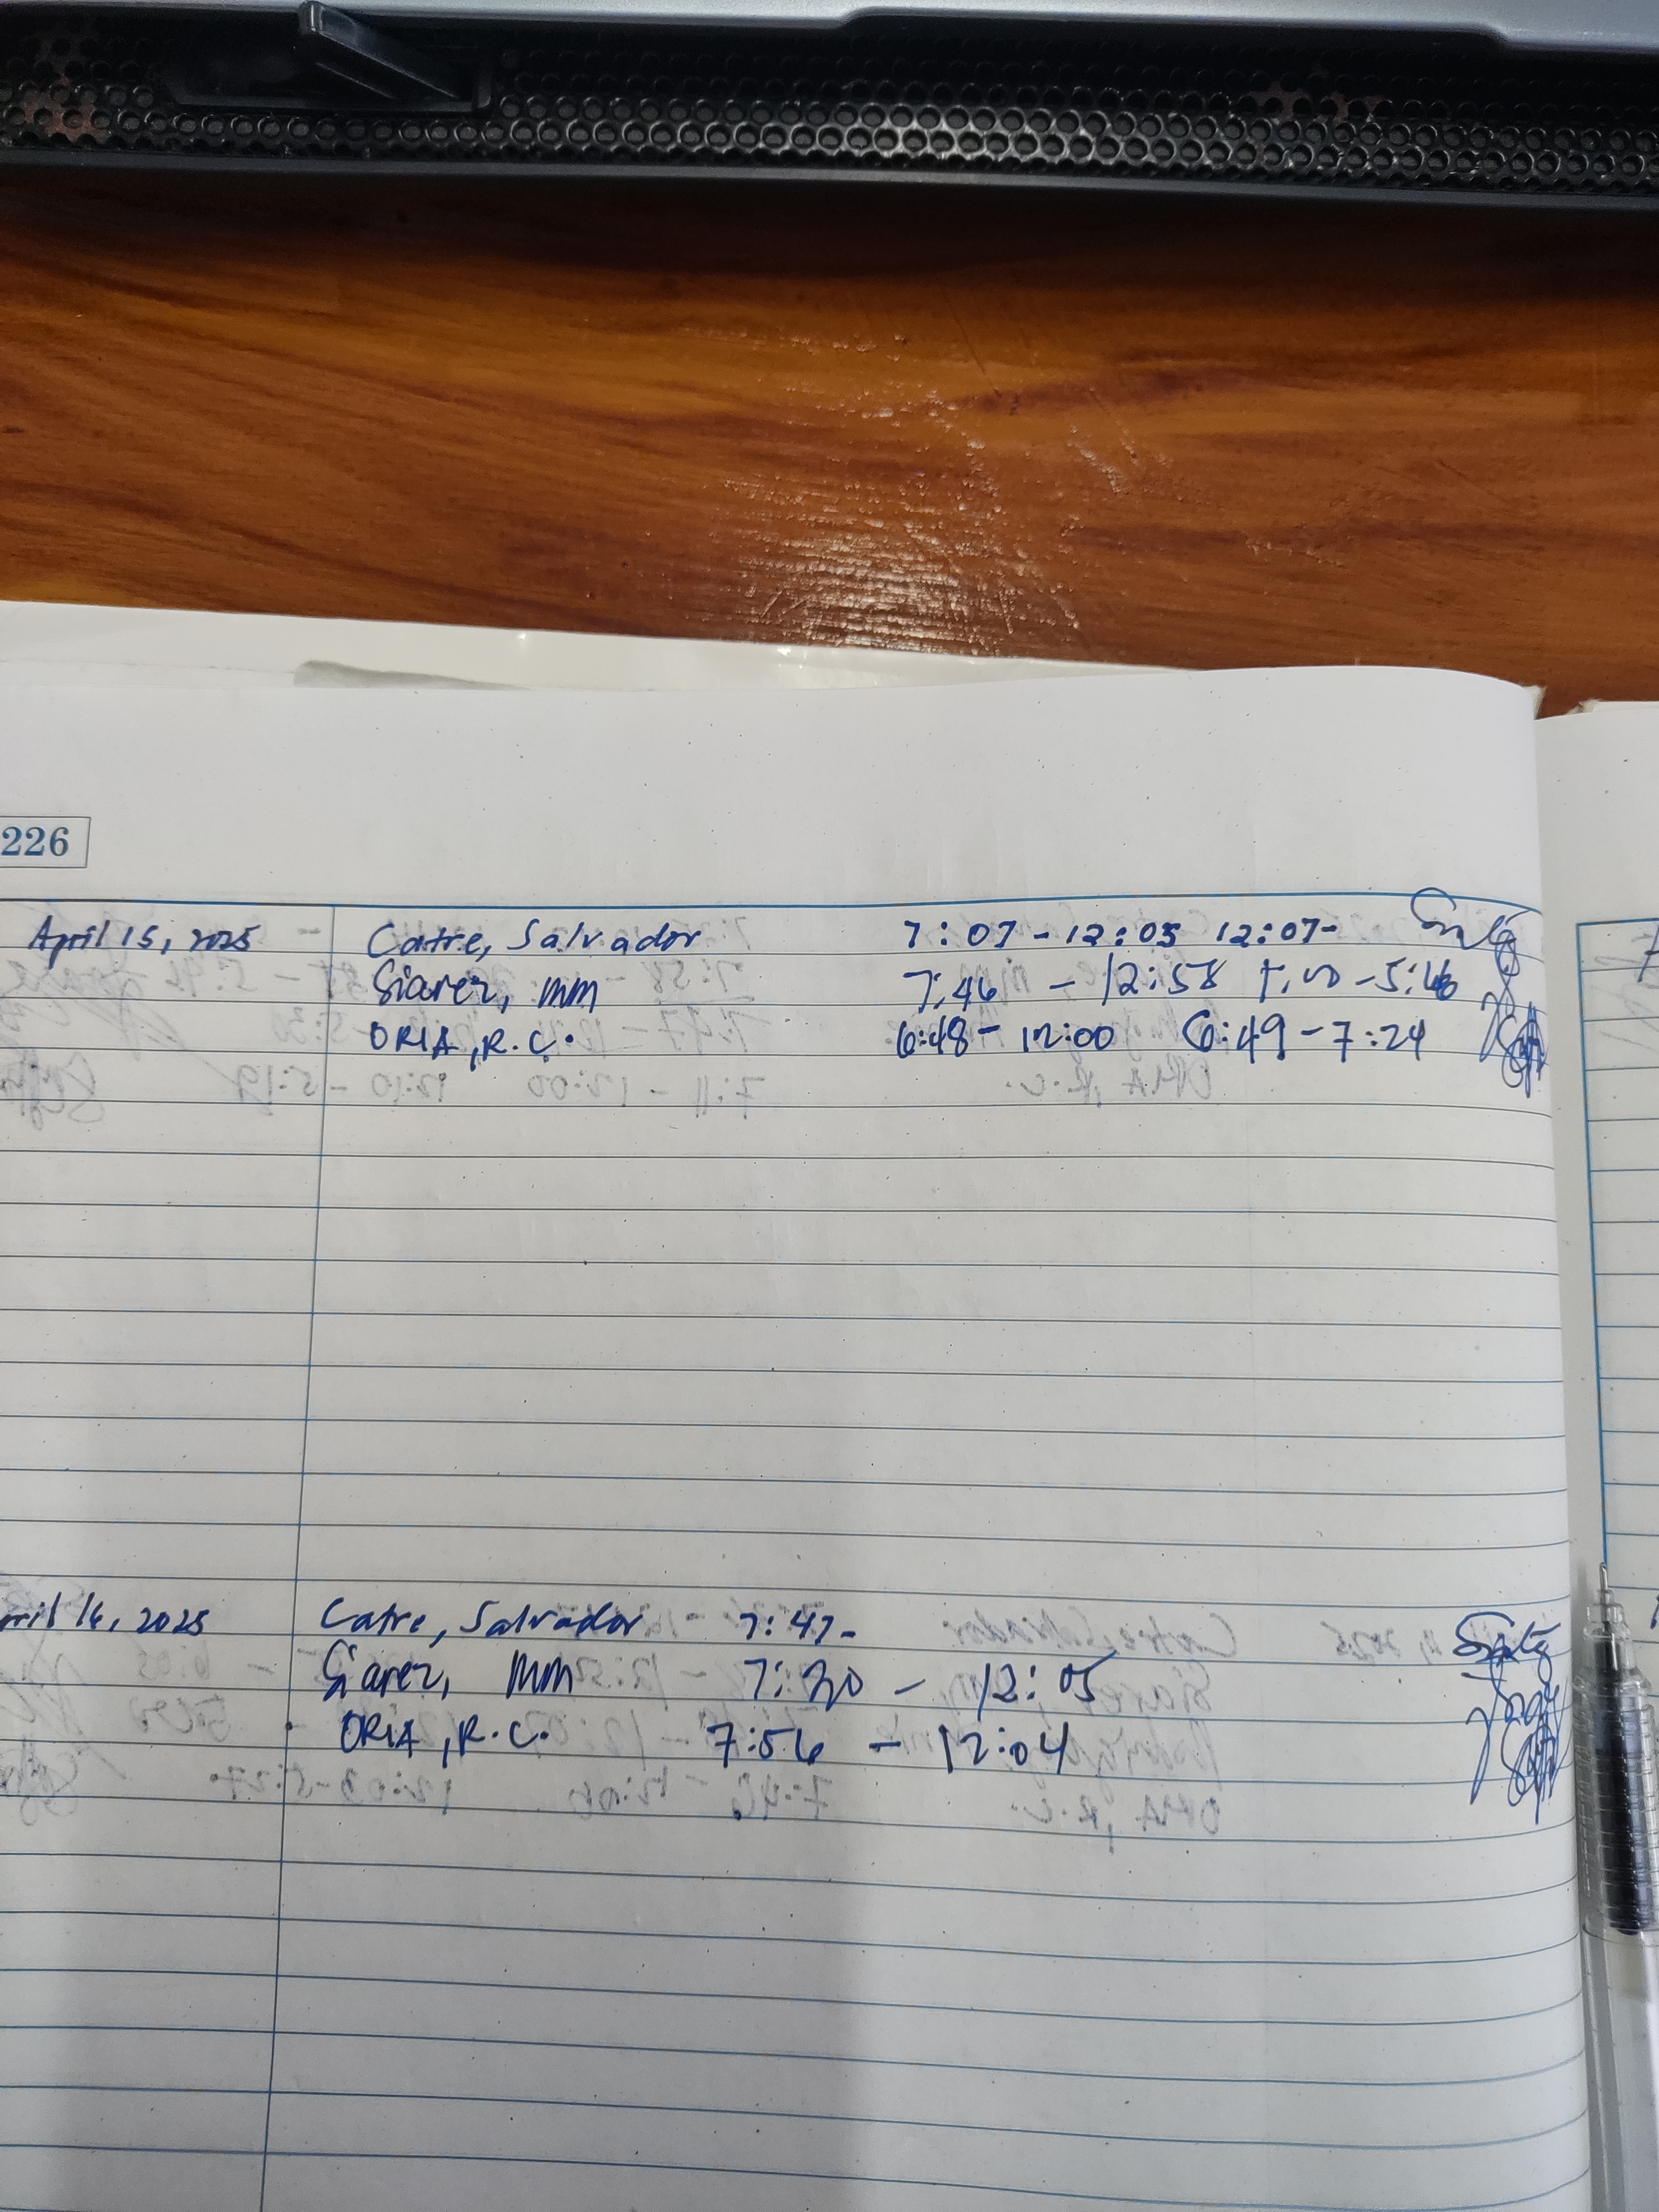 226
April 15, 2025 Catre, Salvador 7:07-12:03 12:07-
Siarez, MM 7:46 - 12:58 1:00 -5:46
ORIA, R.C. 6:48- 12:00 6:49-7:24
ril 16, 2025 Catre, Salvador 7:47-
Siarez, MM 7:30 - 12:05
ORIA, R.C. 7:56 - 12:04